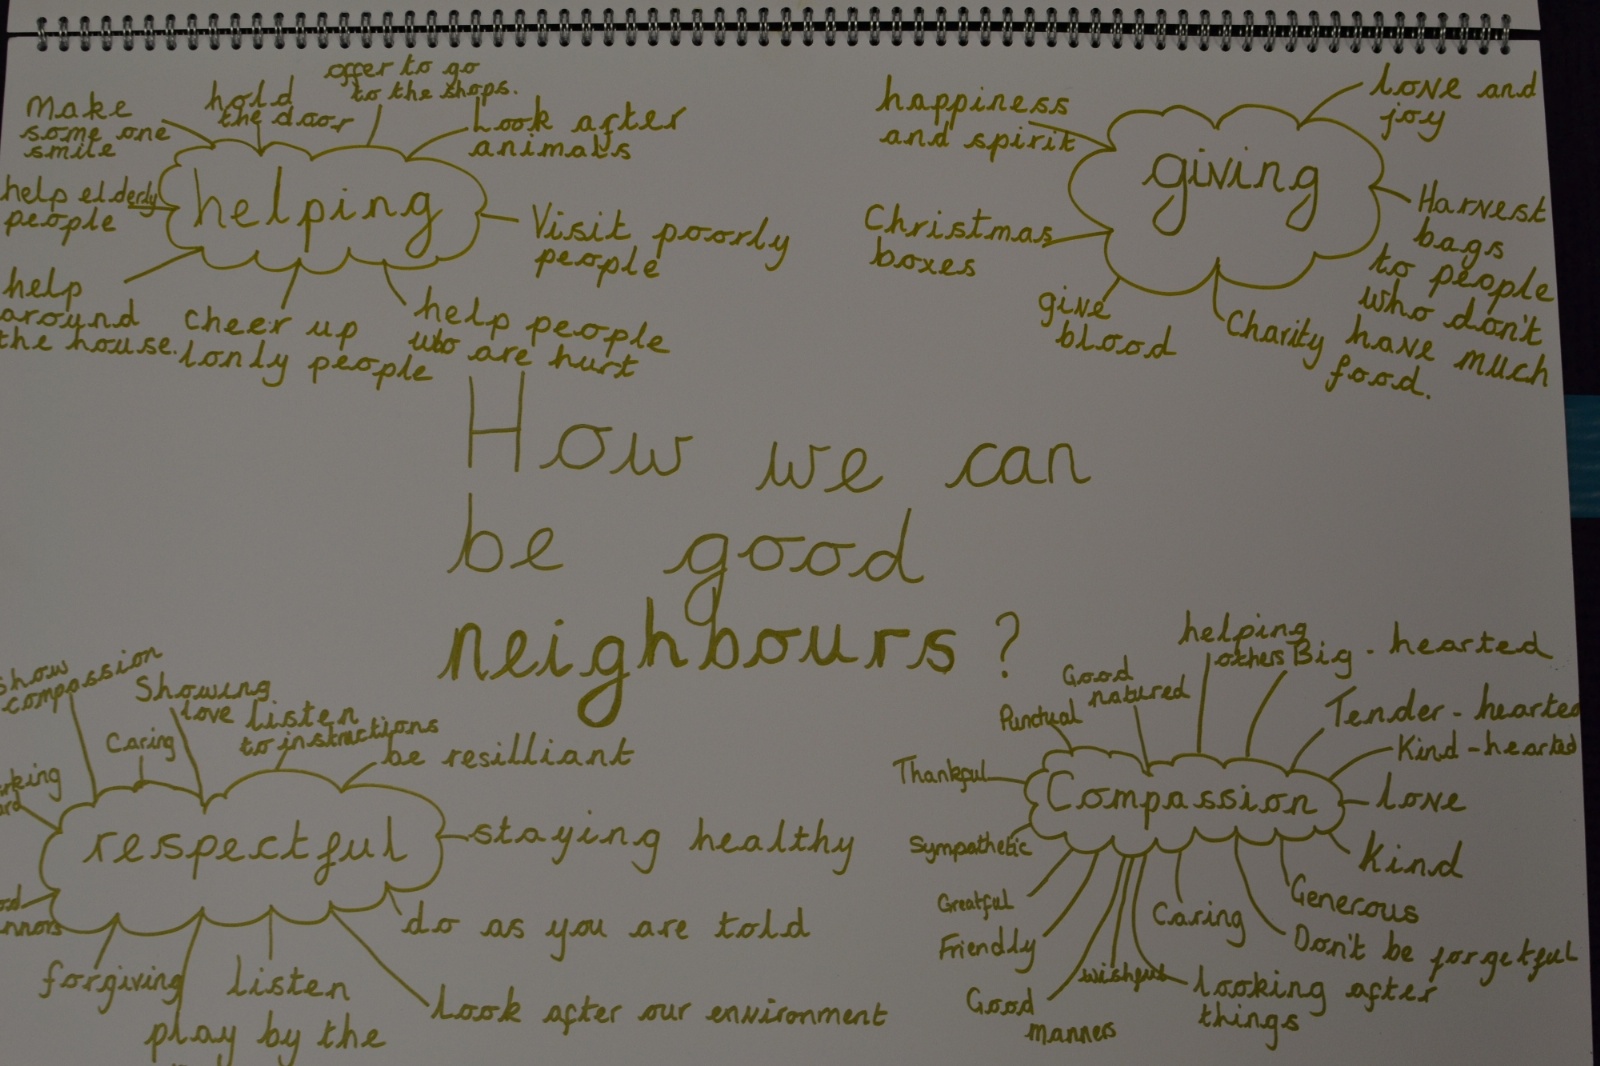 Make
some one
smile
hold
the door
offer to go
to the shops.
Look after
animals
help elderly
people
helping
Visit poorly
people
help
around
the house.
cheer up
lonly people
help people
who are hurt
happiness
and spirit
love and
joy
giving
Christmas
boxes
give
blood
Charity
Harvest
bags
to people
who don't
have much
food.
How we can
be good
neighbours?
show
compassion
Showing
love
Caring
listen
to instructions
be resilliant
respectful
staying healthy
do as you are told
forgiving
Listen
play by the
Look after our environment
helping
others
Big-hearted
Good
natured
Punctual
Tender-hearted
Kind-hearted
Thankful
Compassion
love
Sympathetic
kind
Greatful
Generous
Caring
Friendly
Don't be forgetful
wishful
Good
manners
looking after
things